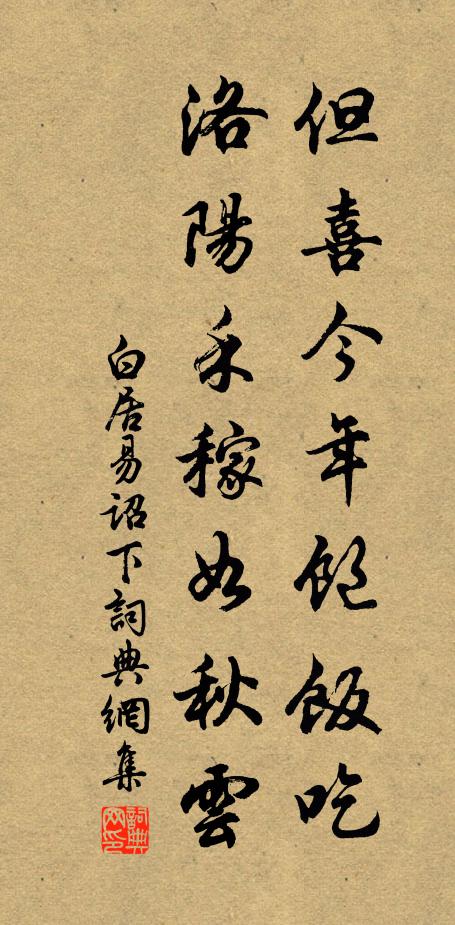 但喜今年飽飯吃
洛陽禾稼如秋雲
白居易詔下詞典網集
詞典网印